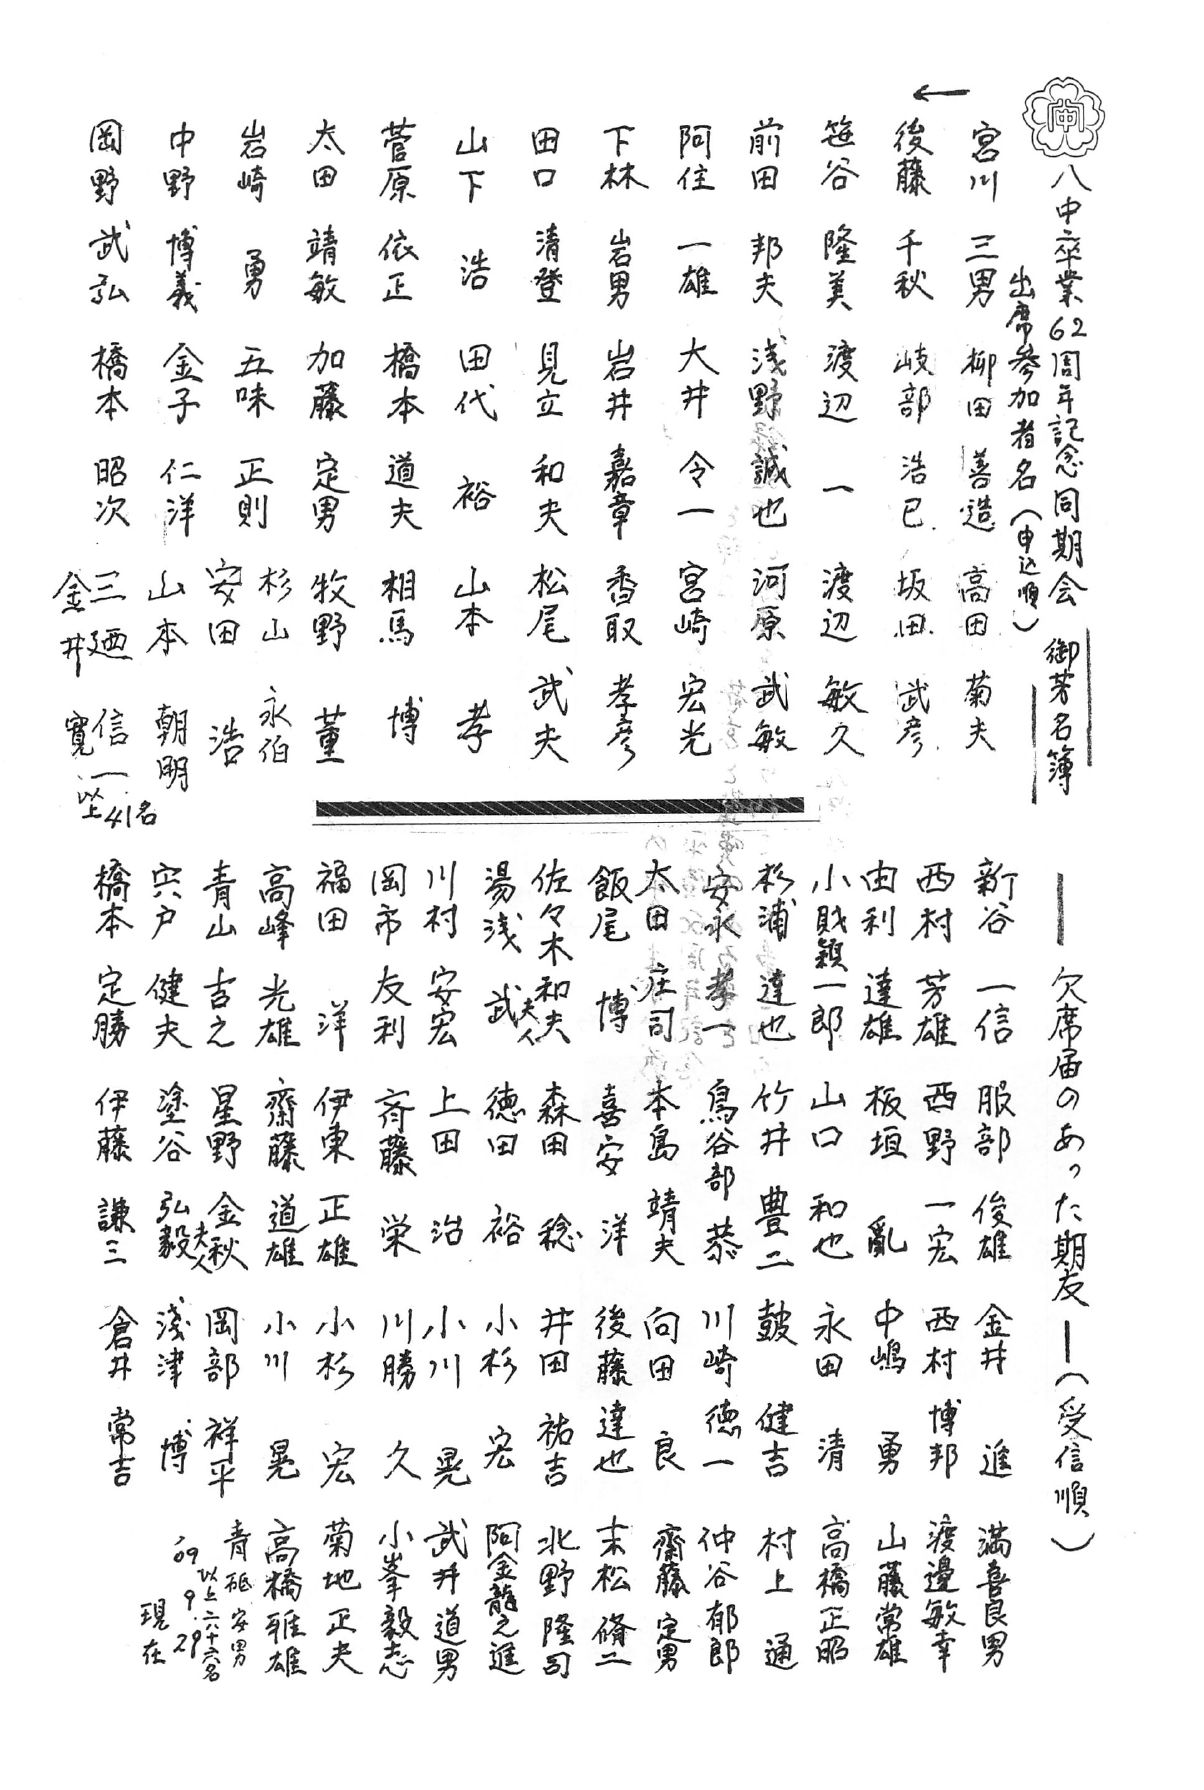 八中卒業62周年記念同期会 御芳名簿
出席参加者名(申込順)
←
宮川 三男 柳田 善造 高田 菊夫
後藤 千秋 岐部 浩巳 坂田 武彦
笹谷 隆美 渡辺 一 渡辺 敏久
前田 邦夫 浅野 誠也 河原 武敏
阿住 一雄 大井 令一 宮崎 宏光
下林 岩男 岩井 嘉章 香取 孝彦
田口 清登 見立 和夫 松尾 武夫
山下 浩 田代 裕 山本 孝
菅原 依正 橋本 道夫 相馬 博
太田 靖敏 加藤 定男 牧野 董
岩崎 勇 五味 正則 杉山 永伯
安田 浩
中野 博義 金子 仁洋 山本 朝明
岡野 武弘 橋本 昭次 三廼 信一
金井 寛
以上41名
― 欠席届のあった期友 ― (受信順)
新谷 一信 服部 俊雄 金井 進 満喜良男
西村 芳雄 西野 一宏 西村 博邦 渡邊敏幸
由利 達雄 板垣 亂 中嶋 勇 山藤常雄
小財穎一郎 山口 和也 永田 清 高橋正昭
杉浦 達也 竹井 豊二 皷 健吉 村上 通
安永 孝一 鳥谷部 恭 川崎 徳一 仲谷郁郎
太田 庄司 本島 靖夫 向田 良 齋藤定男
飯尾 博 喜安 洋 後藤 達也 末松脩二
佐々木和夫 森田 稔 井田 祐吉 北野隆司
湯浅 武夫人 徳田 裕 小杉 宏 阿金龍之進
川村 安宏 上田 治 小川 晃 武井道男
岡市 友利 斉藤 栄 川勝 久 小峯毅志
福田 洋 伊東 正雄 小杉 宏 菊地正夫
高峰 光雄 齋藤 道雄 小川 晃 高橋雅雄
青山 吉之 星野 金秋 岡部 祥平 青砥 安男
宍戸 健夫 塗谷 弘毅夫人 浅津 博
橋本 定勝 伊藤 謙三 倉井 常吉
以上六十六名
'09 9.29 現在